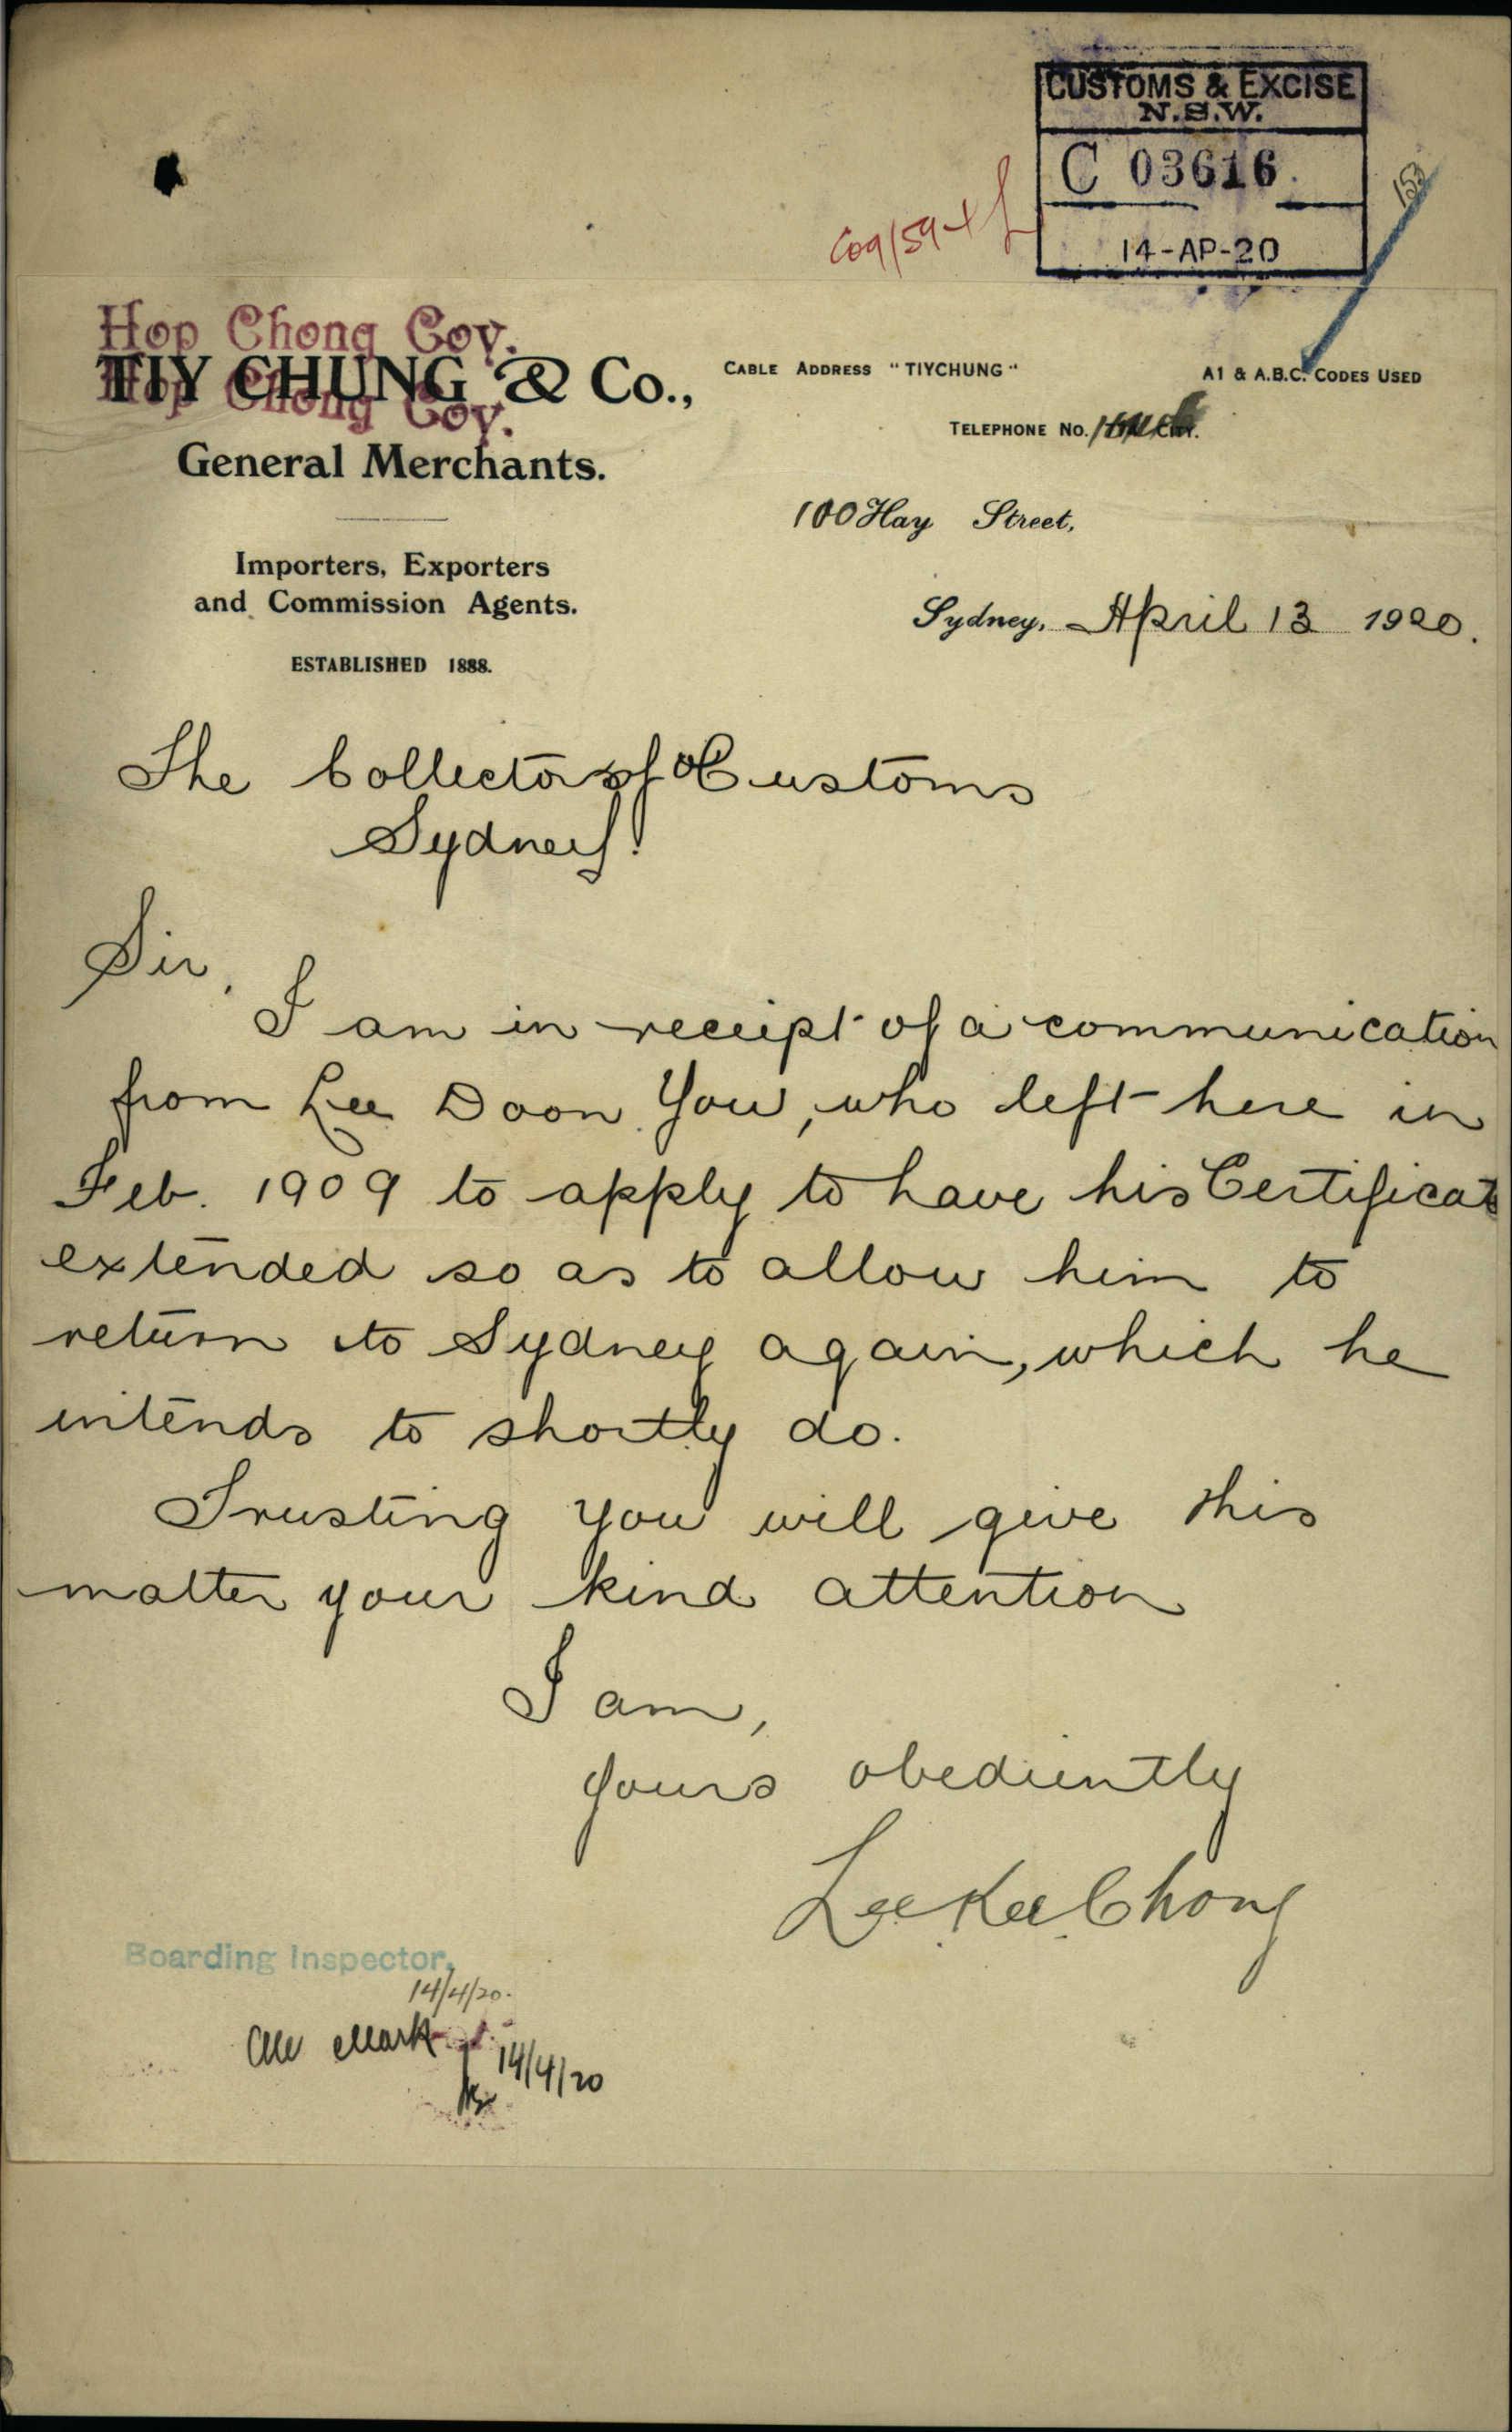 CUSTOMS & EXCISE
N.S.W.
C 03616.
14-AP-20
C09/59
153
Hop Chong Coy.
TIY CHUNG & Co.,
Hop Chong Coy.
General Merchants.
Importers, Exporters
and Commission Agents.
ESTABLISHED 1888.
CABLE ADDRESS "TIYCHUNG"
A1 & A.B.C. CODES USED
TELEPHONE No. CITY.
100 Hay Street,
Sydney, April 13 1920.
The Collector of Customs
Sydney.
Sir,
I am in receipt of a communication
from Lee Doon You, who left here in
Feb. 1909 to apply to have his Certificate
extended so as to allow him to
return to Sydney again, which he
intends to shortly do.
Trusting you will give this
matter your kind attention
I am,
yours obediently
Lee Kee Chong
Boarding Inspector,
14/4/20.
Mark
14/4/20